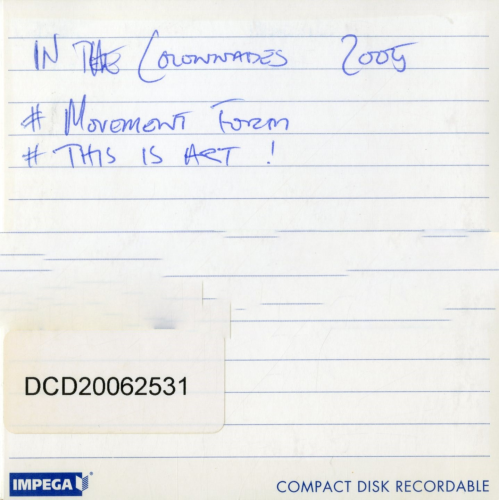 IN THE COLONNADES 2005
# MOVEMENT FORM
# THIS IS ART !
DCD20062531
IMPEGA
COMPACT DISK RECORDABLE